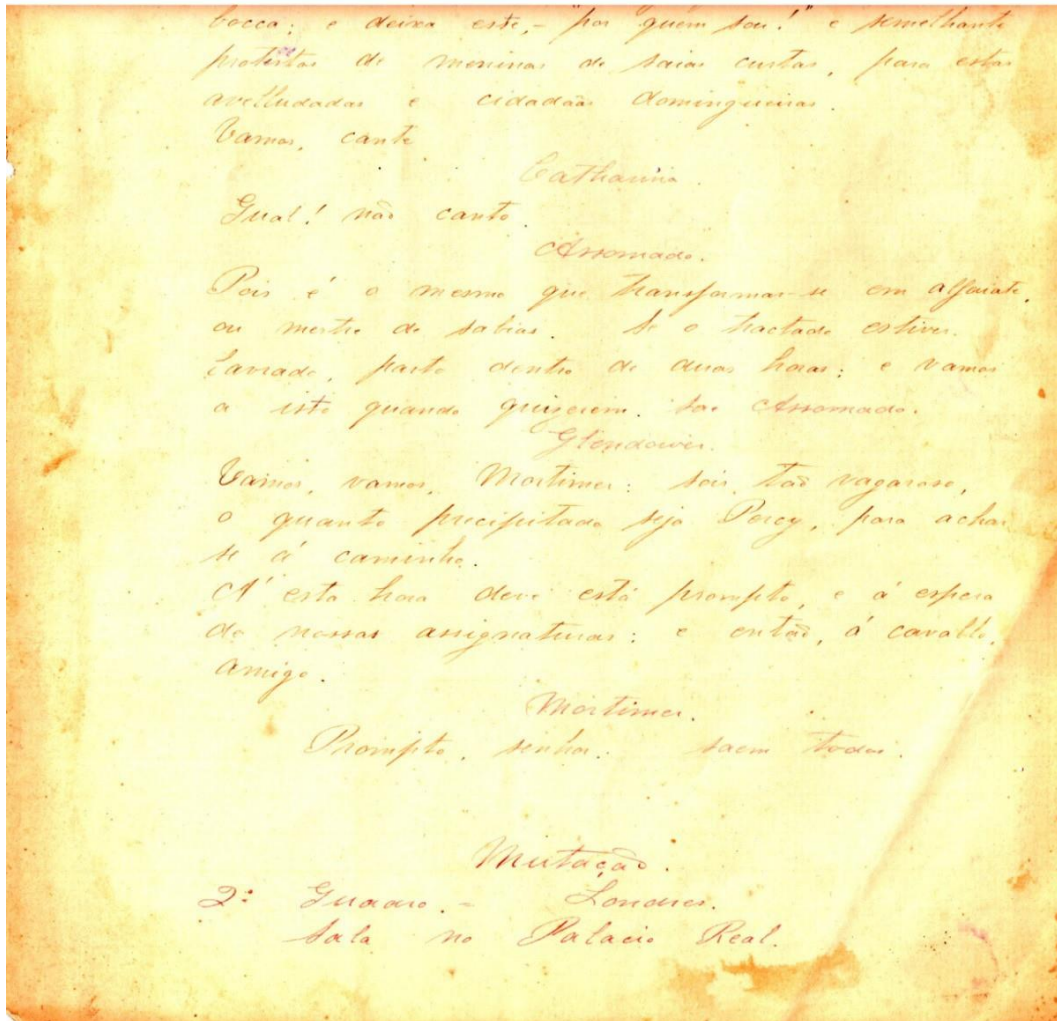 bocca; e deixa este, - "por quem sou!" e semelhante
protestos de meninas de saias curtas, para estas
avelludadas e cidadãas domingueiras.
Vamos, cante
Catharina.
Qual! não canto.
Assomado.
Pois é o mesmo que transformar-se em alfaiate,
ou mestre de sabias. Se o tractado estiver
lavrado, parto dentro de duas horas; e vamos
a isto quando quizerem. sae Assomado.
Glendower.
Vamos, vamos, Mortimer: sois tão vagaroso,
o quanto precipitado seja Percy, para achar
se á caminho.
A' esta hora deve está prompto, e á espera
de nossas assignaturas; e então, á cavallo,
amigo.
Mortimer.
Prompto, senhor. saem todos.
Mutação.
2º Quadro. - Londres.
Sala no Palacio Real.